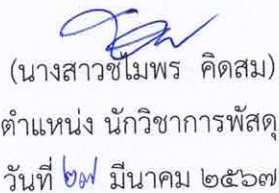 (นางสาวชไมพร คิดสม)
ตำแหน่ง นักวิชาการพัสดุ
วันที่ ๒๗ มีนาคม ๒๕๖๓